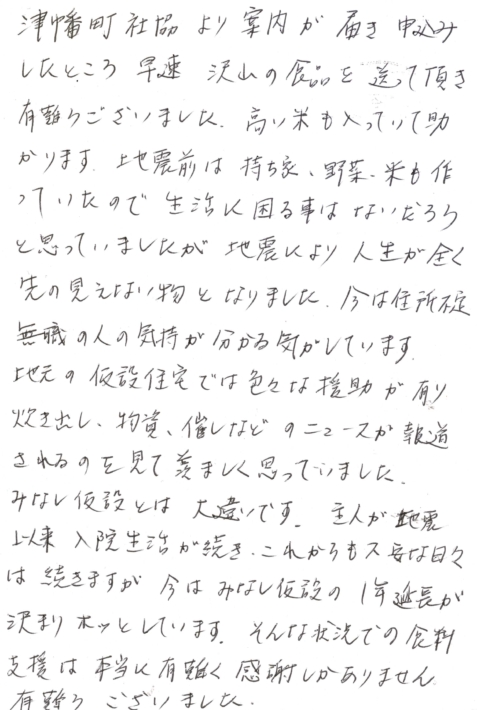 津幡町社協より案内が届き申込み
したところ早速 沢山の食品を送って頂き
有難うございました。高い米も入っていて助
かります。地震前は持ち家、野菜、米も作
っていたので生活に困る事はないだろう
と思っていましたが 地震により人生が全く
先の見えない物となりました。今は住所不定
無職の人の気持が分かる気がしています。
地元の仮設住宅では色々な援助が有り
炊き出し、物資、催しなどのニュースが報道
されるのを見て羨ましく思っていました。
みなし仮設とは大違いです。主人が地震
以来入院生活が続き、これからも不安な日々
は続きますが 今はみなし仮設の1年延長が
決まりホッとしています。そんな状況での食料
支援は本当に有難く感謝しかありません
有難うございました。